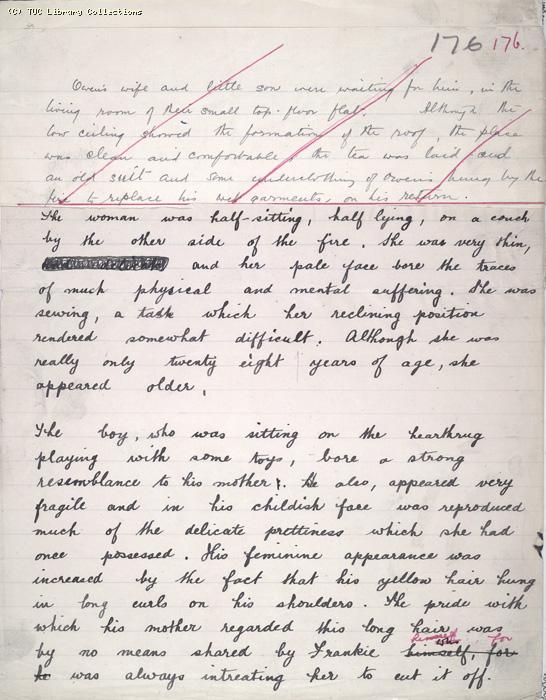 (C) TUC Library Collections
176 176.
Owen's wife and little son were waiting for him, in the
living room of their small top-floor flat. Although the
low ceiling showed the formation of the roof, the place
was clean and comfortable, the tea was laid and
an old suit and some underclothing of Owen's hung by the
fire to replace his wet garments, on his return.
The woman was half-sitting, half lying, on a couch
by the other side of the fire. She was very thin,
and her pale face bore the traces
of much physical and mental suffering. She was
sewing, a task which her reclining position
rendered somewhat difficult. Although she was
really only twenty eight years of age, she
appeared older.
The boy, who was sitting on the hearthrug
playing with some toys, bore a strong
resemblance to his mother. He also, appeared very
fragile and in his childish face was reproduced
much of the delicate prettiness which she had
once possessed. His feminine appearance was
increased by the fact that his yellow hair hung
in long curls on his shoulders. The pride with
which his mother regarded this long hair was
himself for
by no means shared by Frankie himself, for
he was always intreating her to cut it off.